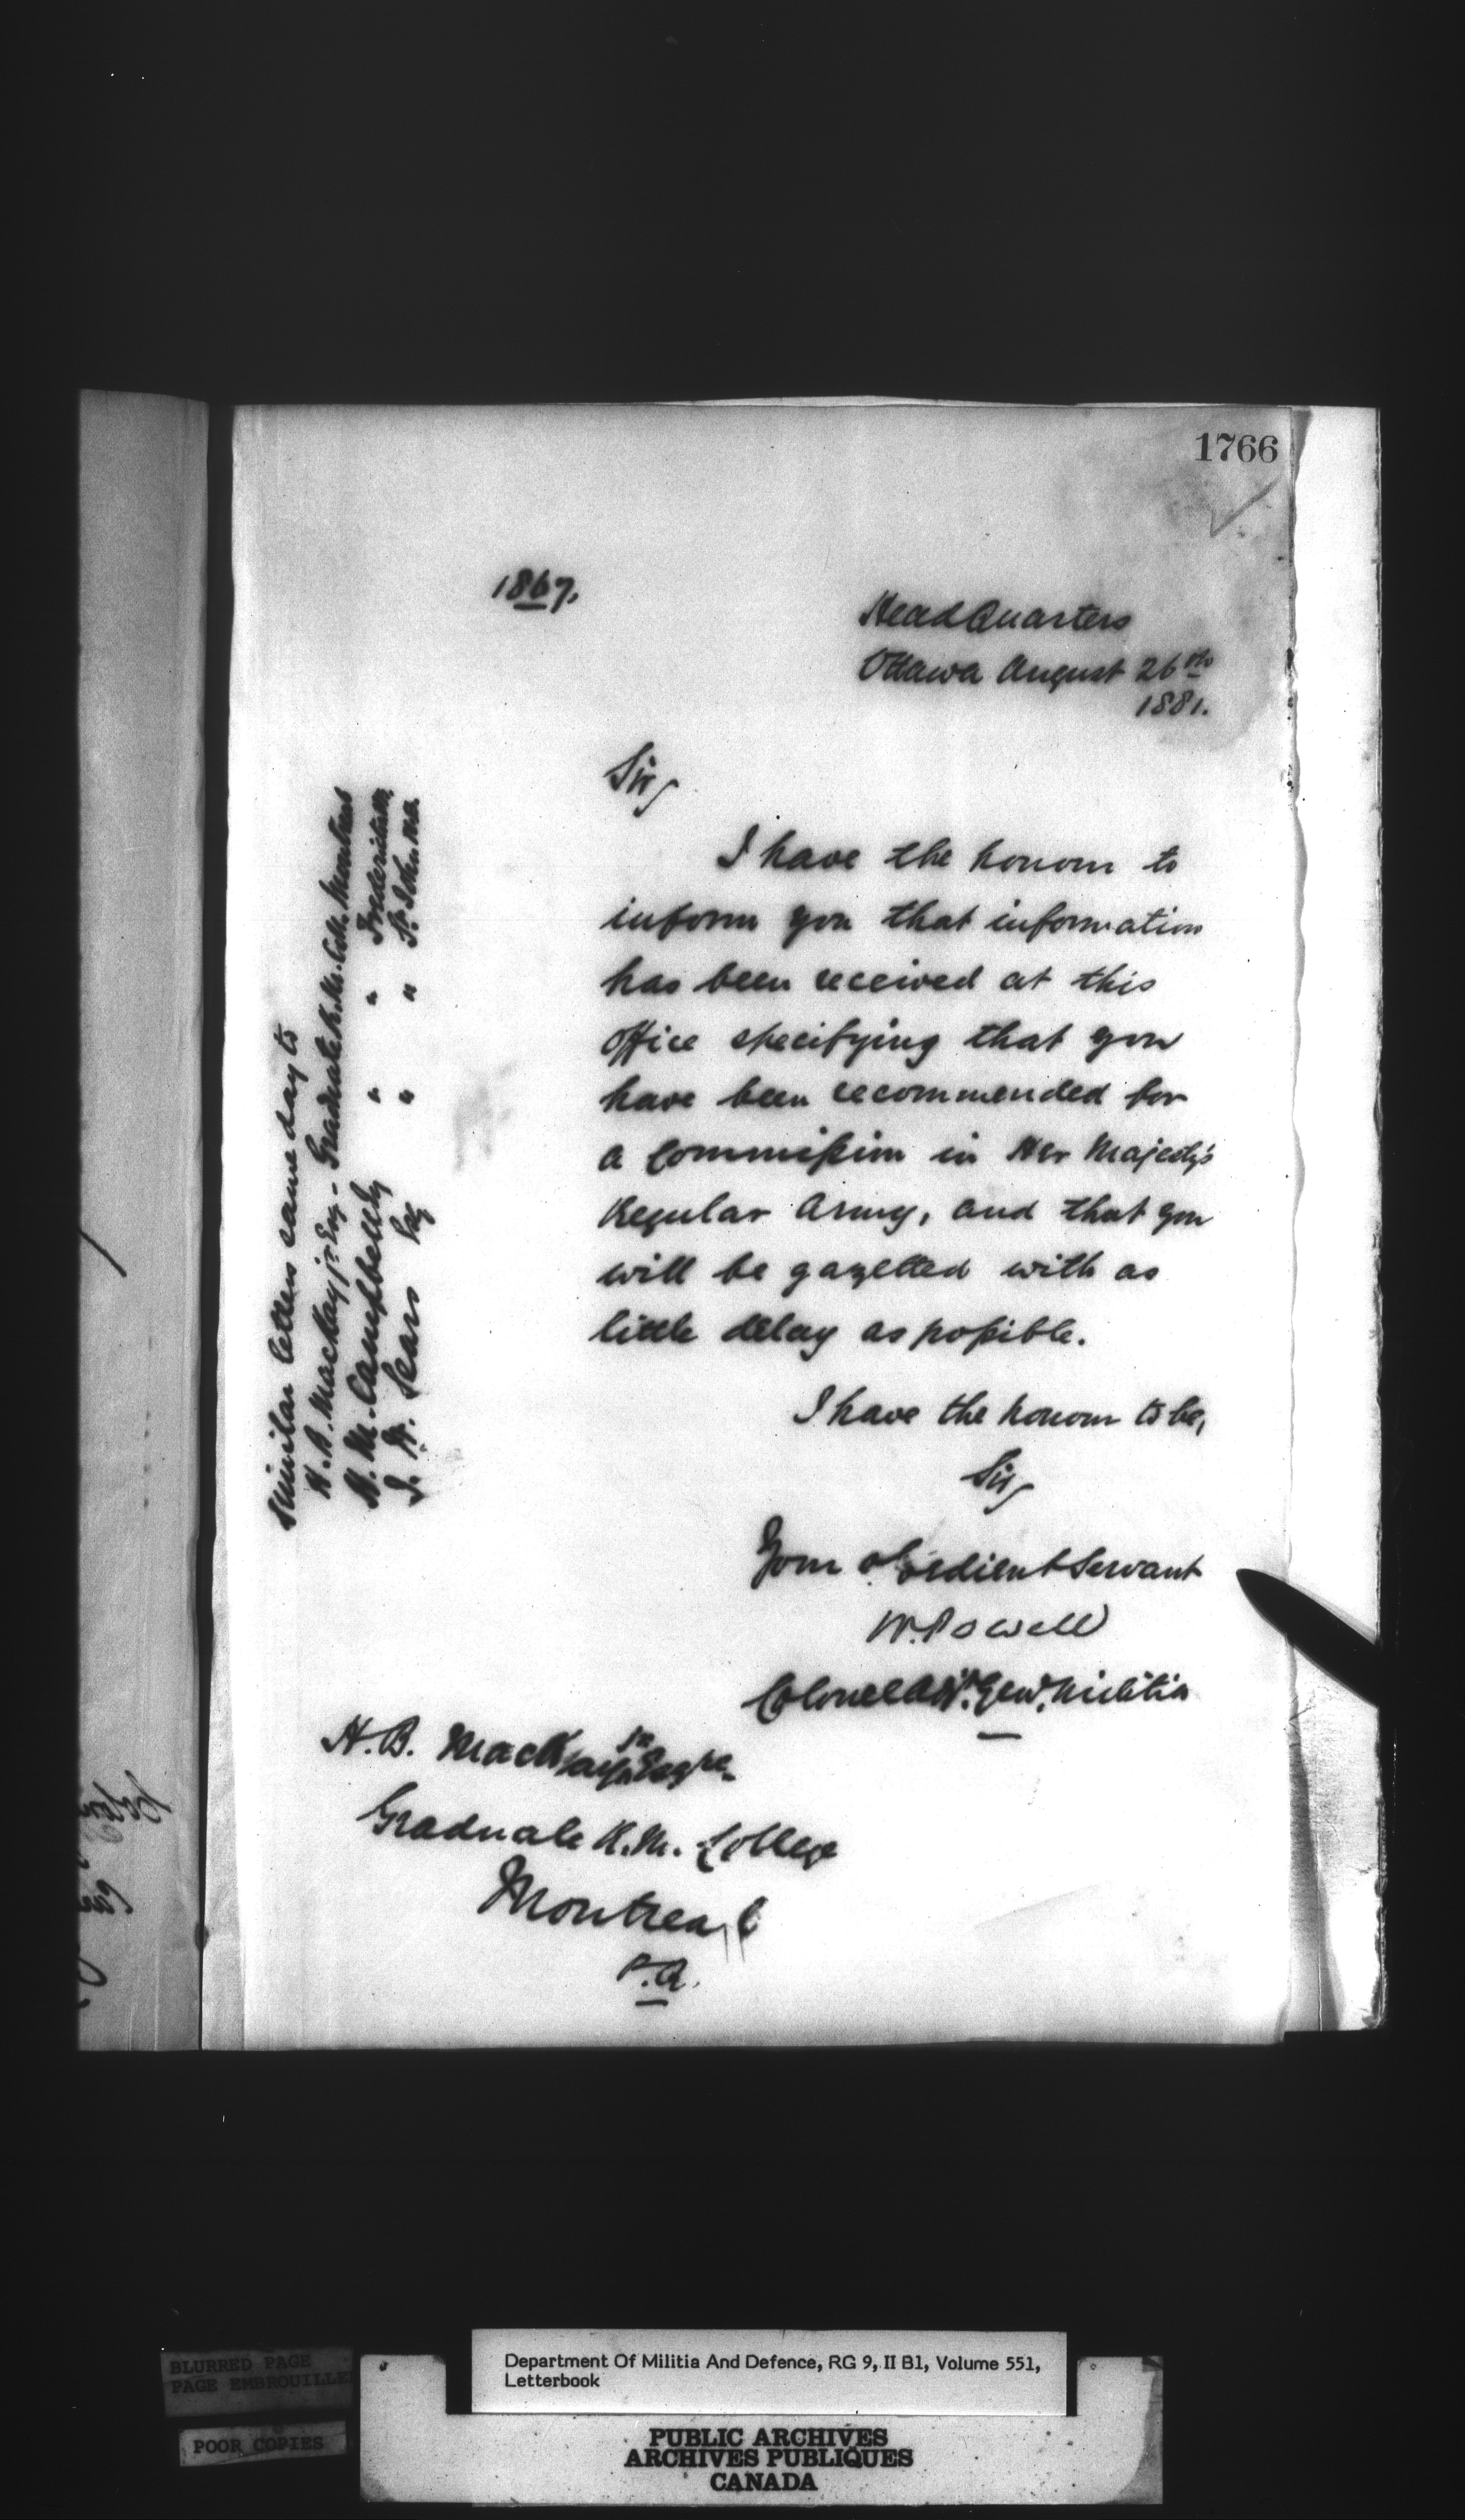 1766
1867.
Head Quarters
Ottawa August 26th
1881.
Sir,
I have the honour to
inform you that information
has been received at this
office specifying that you
have been recommended for
a Commission in Her Majesty's
Regular Army, and that you
will be gazetted with as
little delay as possible.
I have the honour to be,
Sir,
Your obedient Servant
W. Powell
Colonel Adjt. Genl. Militia
H. B. MacKay Jr Esqre.
Graduate R. M. College
Montreal
P.Q.
Similar letters same day to
H. B. MacKay jr Esq - Graduate R. M. Coll. Montreal
H. M. Campbell Esq " " Fredericton
J. W. Sears Esq " " St. John. N.B.
Department Of Militia And Defence, RG 9, II B1, Volume 551,
Letterbook
BLURRED PAGE
PAGE EMBROUILLEE
POOR COPIES
PUBLIC ARCHIVES
ARCHIVES PUBLIQUES
CANADA